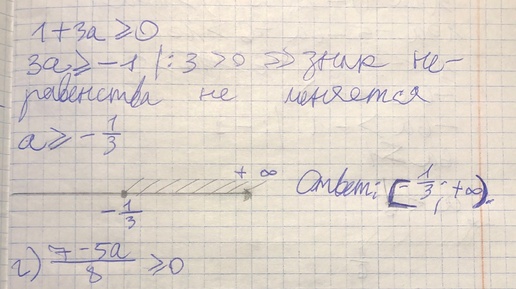 1+3a ⩾ 0
3a ⩾ -1 | : 3 > 0 => знак не-
равенства не меняется
a ⩾ -1/3
+∞
-1/3
Ответ: [-1/3; +∞).
г) (7-5a)/8 ⩾ 0